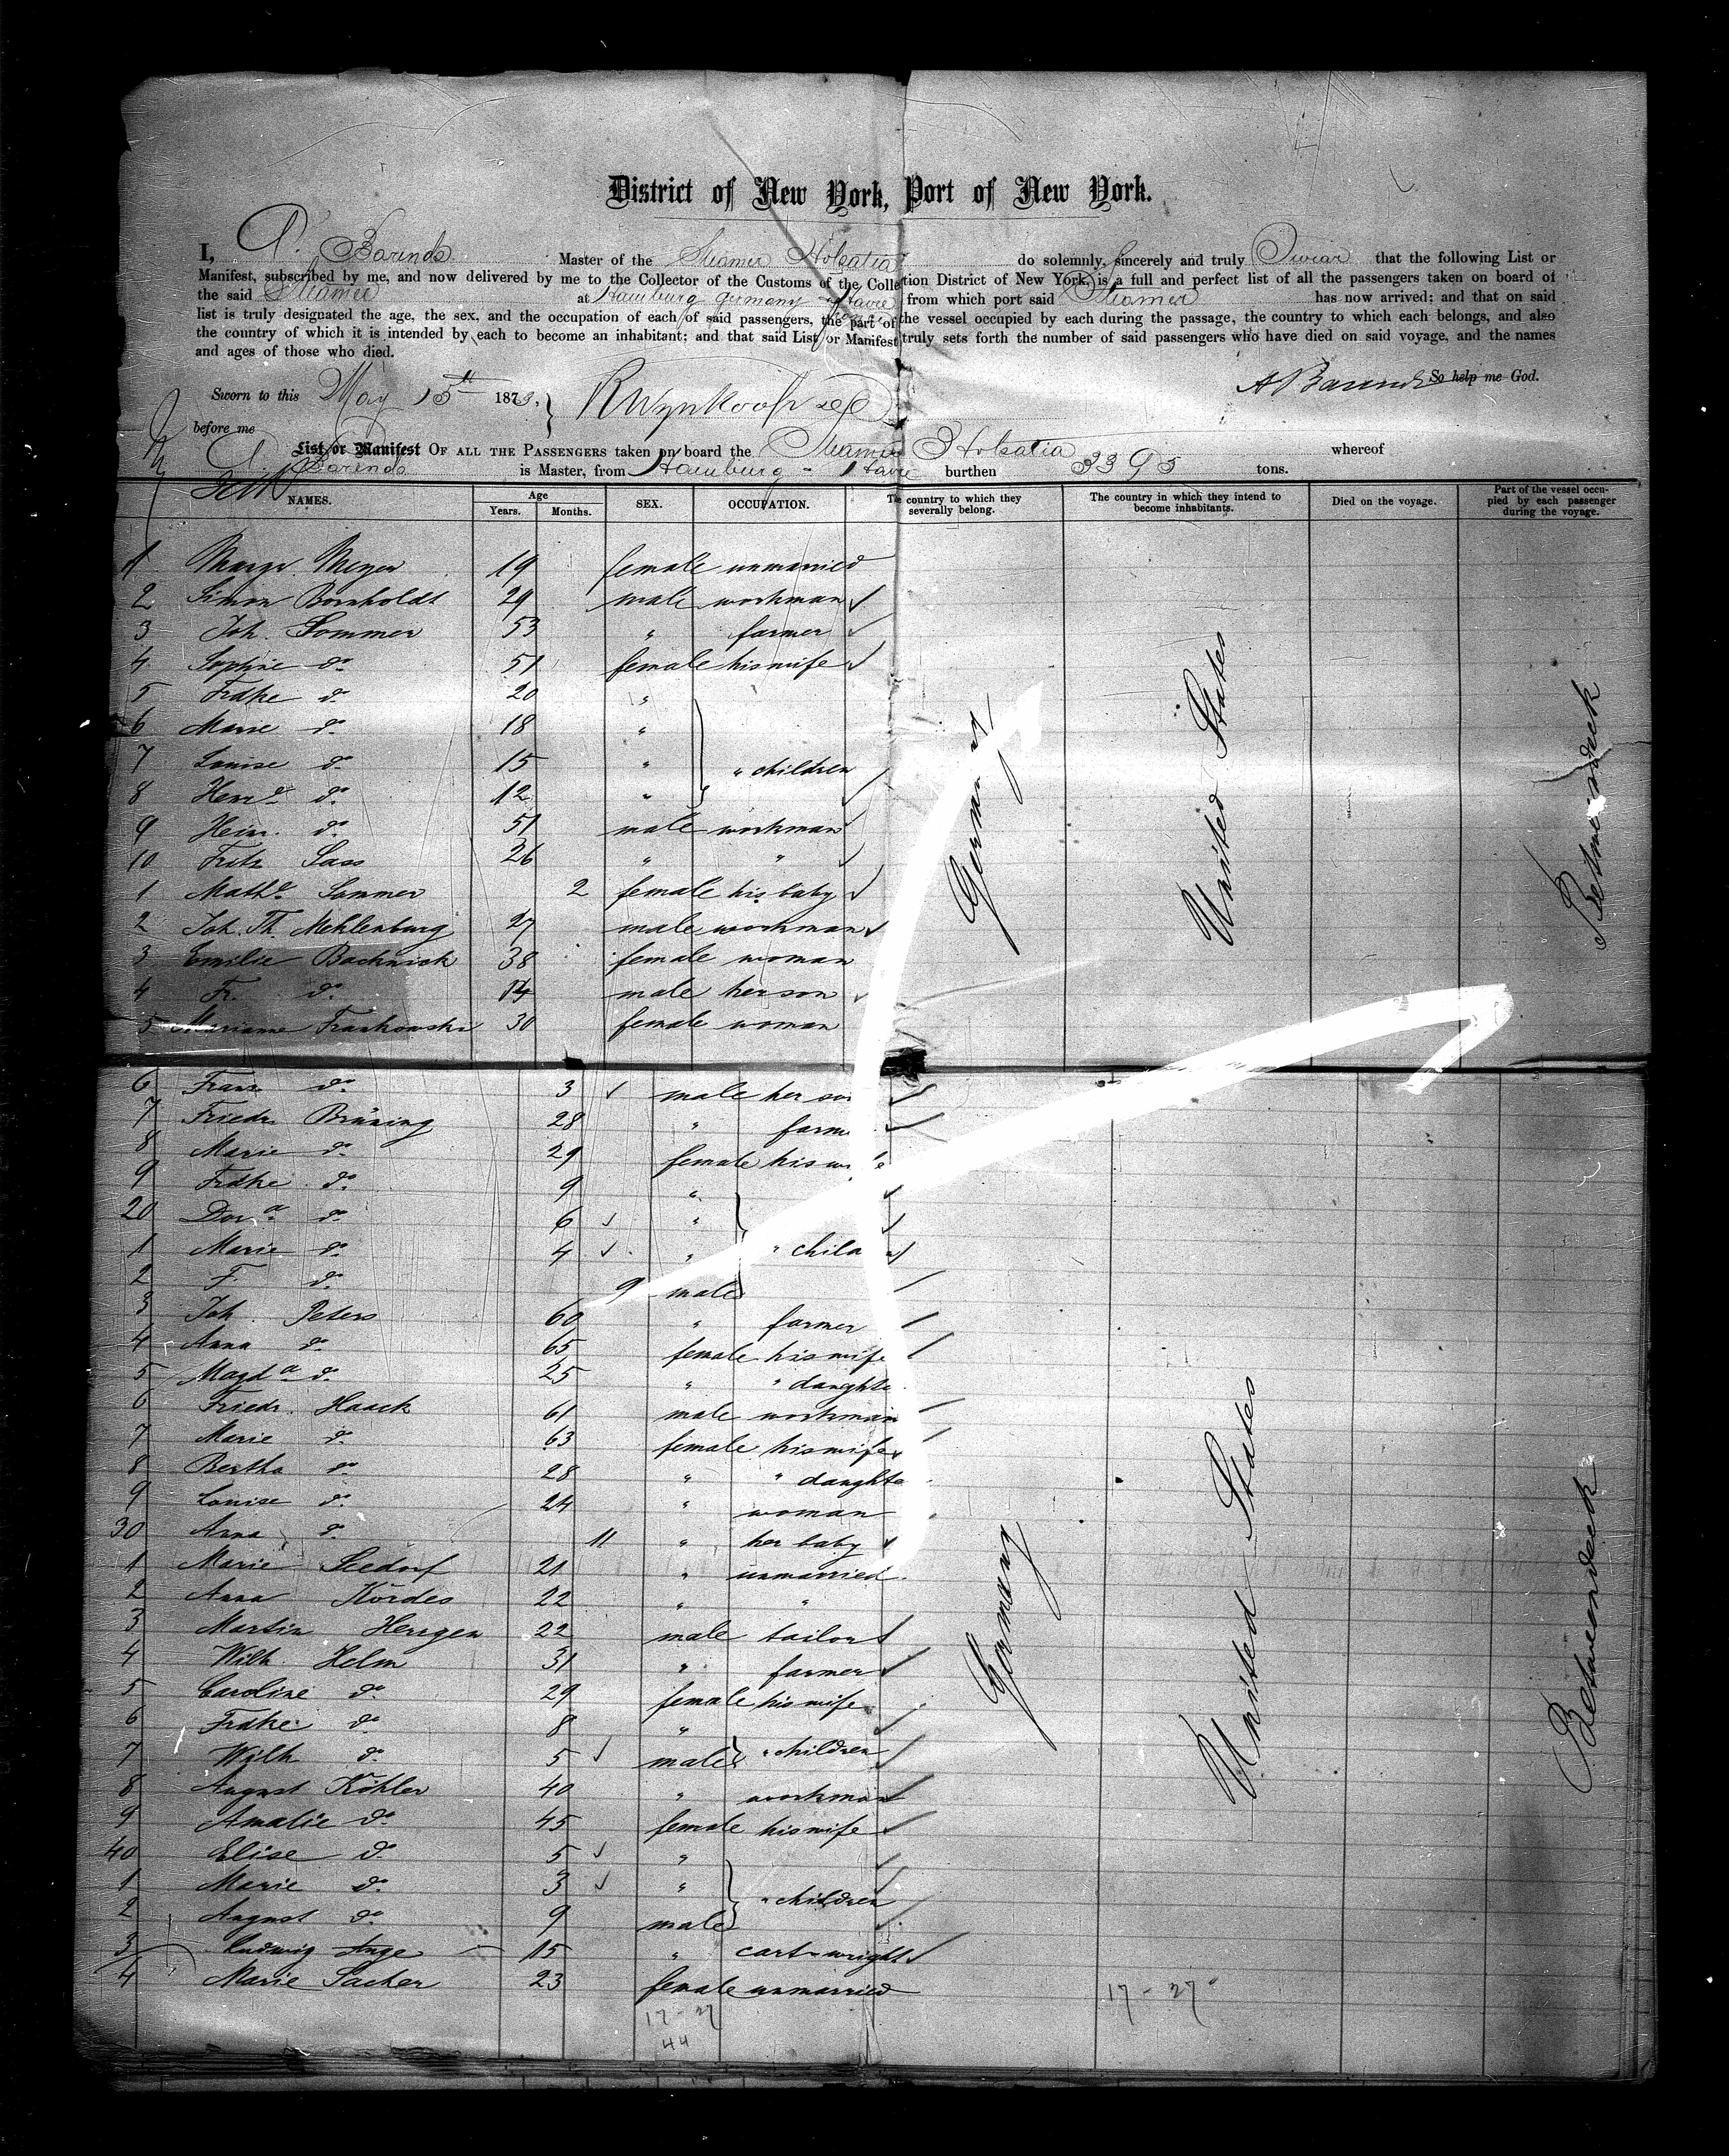 District of New York, Port of New York.
I, A. Barends Master of the Steamer Holsatia do solemnly, sincerely and truly Swear that the following List or
Manifest, subscribed by me, and now delivered by me to the Collector of the Customs of the Collection District of New York, is a full and perfect list of all the passengers taken on board of
the said Steamer at Hamburg Germany & Havre from which port said Steamer has now arrived; and that on said
list is truly designated the age, the sex, and the occupation of each of said passengers, the part of the vessel occupied by each during the passage, the country to which each belongs, and also
the country of which it is intended by each to become an inhabitant; and that said List or Manifest truly sets forth the number of said passengers who have died on said voyage, and the names
and ages of those who died.
So help me God.
A Barends
Sworn to this May 15th 1873,
before me
List or Manifest OF ALL THE PASSENGERS taken on board the Steamer Holsatia whereof
A. Barends is Master, from Hamburg - Havre burthen 3395 tons.
NAMES. Age Years. Months. SEX. OCCUPATION. The country to which they severally belong. The country in which they intend to become inhabitants. Died on the voyage. Part of the vessel occupied by each passenger during the voyage.
1 Margr. Meyer 19 female unmarried
2 Simon Bornholdt 29 male workman
3 Joh. Sommer 53 " farmer
4 Sophie do 51 female his wife
5 Frdke do 20 "
6 Marie do 18 "
7 Louise do 15 " " children
8 Henr. do 12 "
9 Hein. do 51 male workman
10 Fritz Sass 26 " "
1 Mathe Sommer 2 female his baby
2 Joh. Th. Mehlenburg 27 male workman
3 Emilie Bachnick 38 female woman
4 Fr. do 14 male her son
5 Marianne Frankowski 30 female woman
Germany
United States
Betweendeck
6 Franz do 3 male her son
7 Friedr. Brüning 28 " farm
8 Marie do 29 female his wife
9 Frdke do 9 "
20 Dora do 6 "
1 Marie do 4 " " child
2 F. do 9 male
3 Joh. Peters 60 " farmer
4 Anna do 65 female his wife
5 Magda do 25 " " daughte
6 Friedr. Haack 61 male workman
7 Marie do 63 female his wife
8 Bertha do 28 " " daughte
9 Louise do 24 " woman
30 Anna do 11 " her baby
1 Marie Seedorf 21 " unmarried
2 Anna Kördes 22 " "
3 Martin Herrgen 22 male tailor
4 Wilh. Helm 31 " farmer
5 Caroline do 29 female his wife
6 Frdke do 8 "
7 Wilh do 5 male " children
8 August Köhler 40 " workman
9 Amalie do 45 female his wife
40 Elise do 5 "
1 Marie do 3 " " children
2 August do 9 male
3 Ludwig Ange 15 " cart-wright
4 Marie Sacher 23 female unmarried
Germany
United States
Betweendeck
17 - 27
17 - 27
44